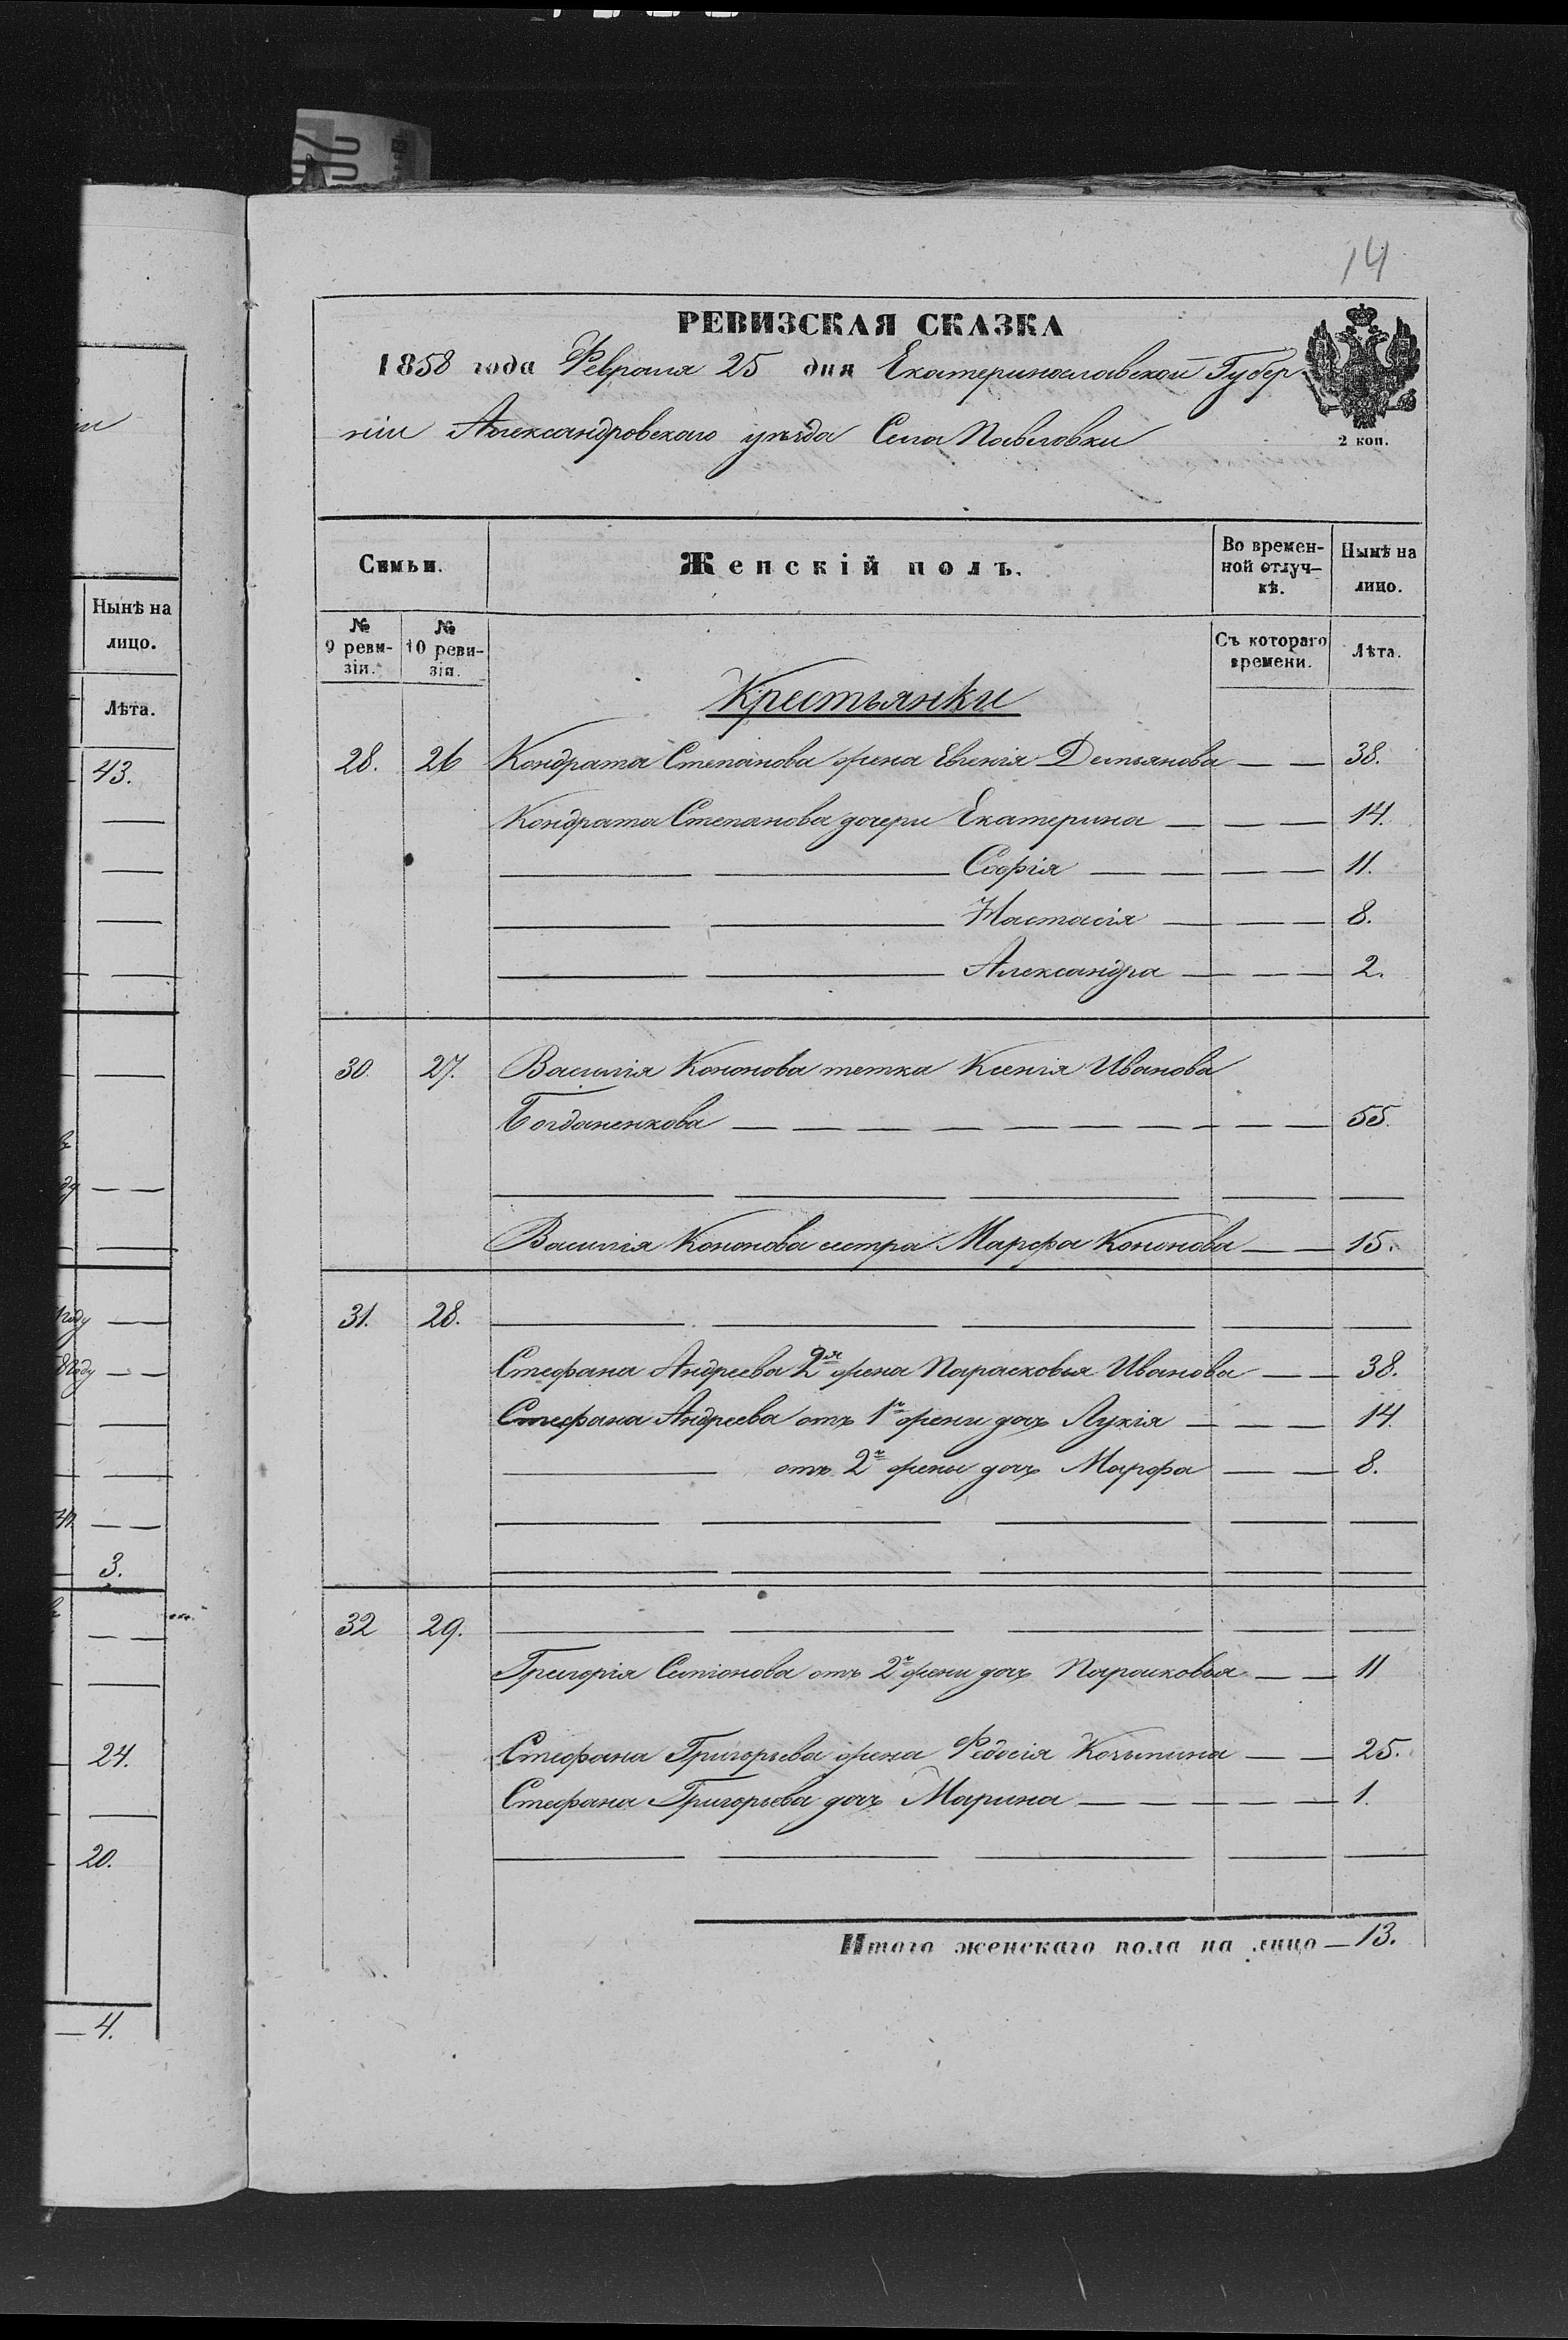 14
РЕВИЗСКАЯ СКАЗКА
1858 года Февраля 25 дня Екатеринославской Губер
ніи Александровскаго уѣзда Села Павловки
2 коп.
Семьи.
Женскій полъ.
Во времен-
ной отлуч-
кѣ.
Нынѣ на
лицо.
№
9 реви-
зіи.
№
10 реви-
зіи.
Съ котораго
времени.
Лѣта.
Крестьянки
28. 26 Кондрата Степанова жена Евгенія Демьянова — — 38.
Кондрата Степанова дочери Екатерина — — — 14.
— — Софія — — — — 11.
— — Настасія — — — 8.
— — Александра — — — 2.
30. 27. Василія Кононова тетка Ксенія Иванова
Богданенкова — — — — — — — — — 55.
— — — — —
Василія Кононова сестра Марфа Кононова — — 15.
31. 28. — — — — —
Стефана Андреева 2я жена Парасковья Иванова — — 38.
Стефана Андреева отъ 1й жены дочь Лукія — — — 14.
— отъ 2й жены дочь Марфа — — 8.
— — — — —
— — — — —
32 29. — — — — —
Григорія Симонова отъ 2й жены дочь Парасковья — — 11
Стефана Григорьева жена Федосія — — 25.
Стефана Григорьева дочь Марина — — — — — 1.
— — — — —
Итого женскаго пола на лицо — 13.
Нынѣ на
лицо.
Лѣта.
43.
году
году
3.
24.
20.
— 4.